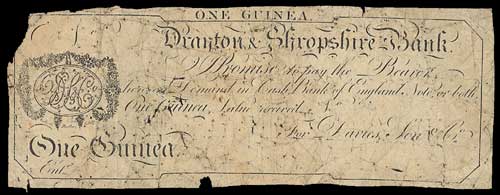 ONE GUINEA
Drayton & Shropshire Bank
I Promise to pay the Bearer
here on Demand in Cash Bank of England Note or both
One Guinea Value received
For Davies, Son & Co.
One Guinea
Entd.